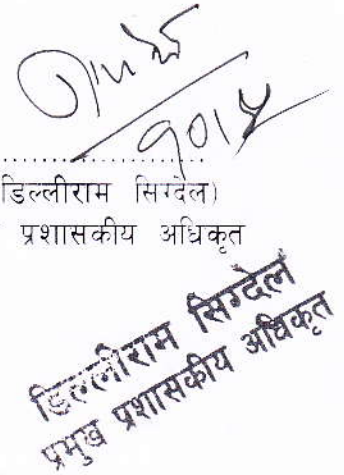 १०।५
डिल्लीराम सिग्देल)
प्रशासकीय अधिकृत
डिल्लीराम सिग्देल
प्रमुख प्रशासकीय अधिकृत